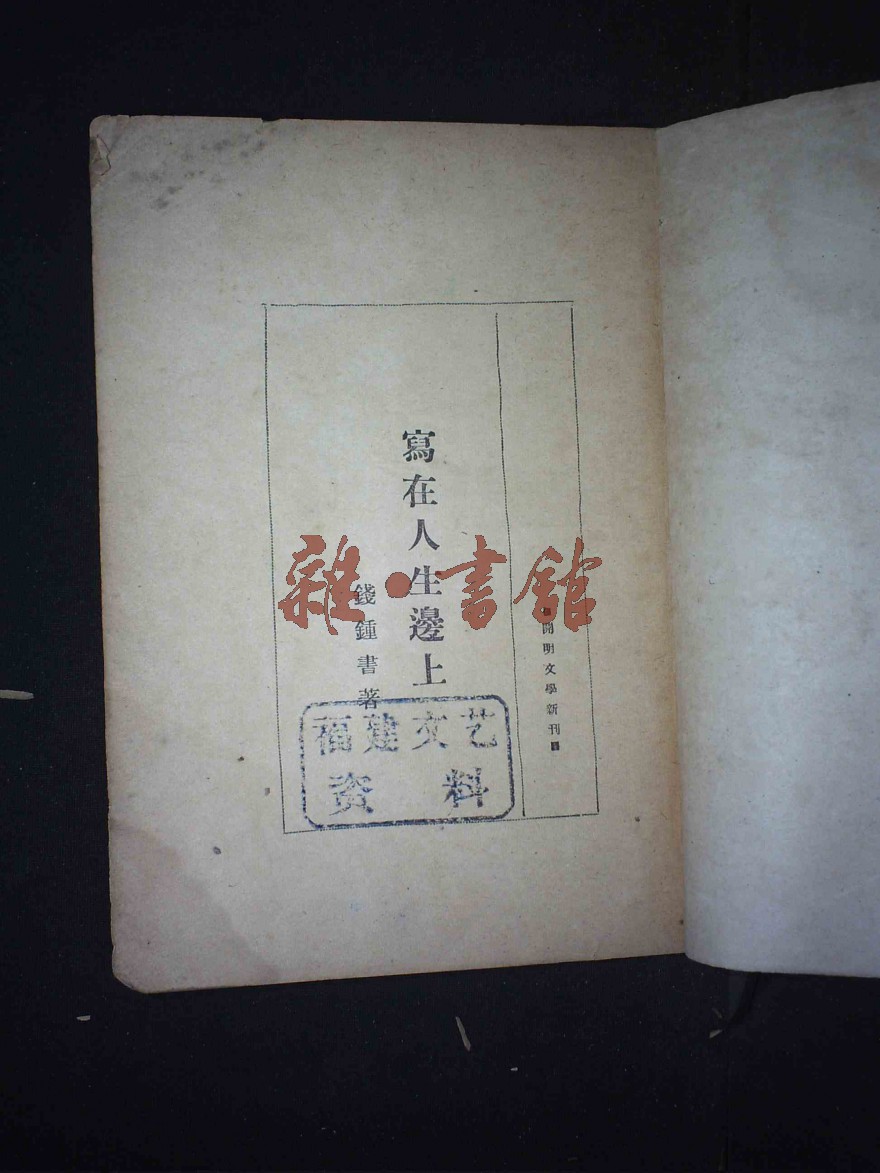 開明文學新刊
寫在人生邊上
錢鍾書著
雜·書館
福建文艺
资料